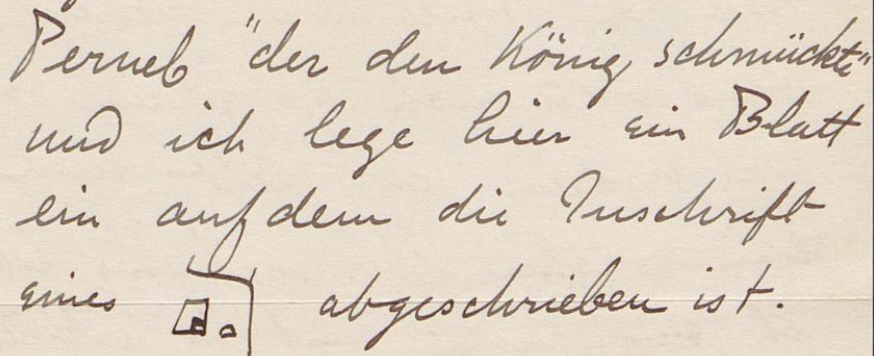 Perneb "der den König schmückte"
und ich lege hier ein Blatt
ein auf dem die Inschrift
eines abgeschrieben ist.